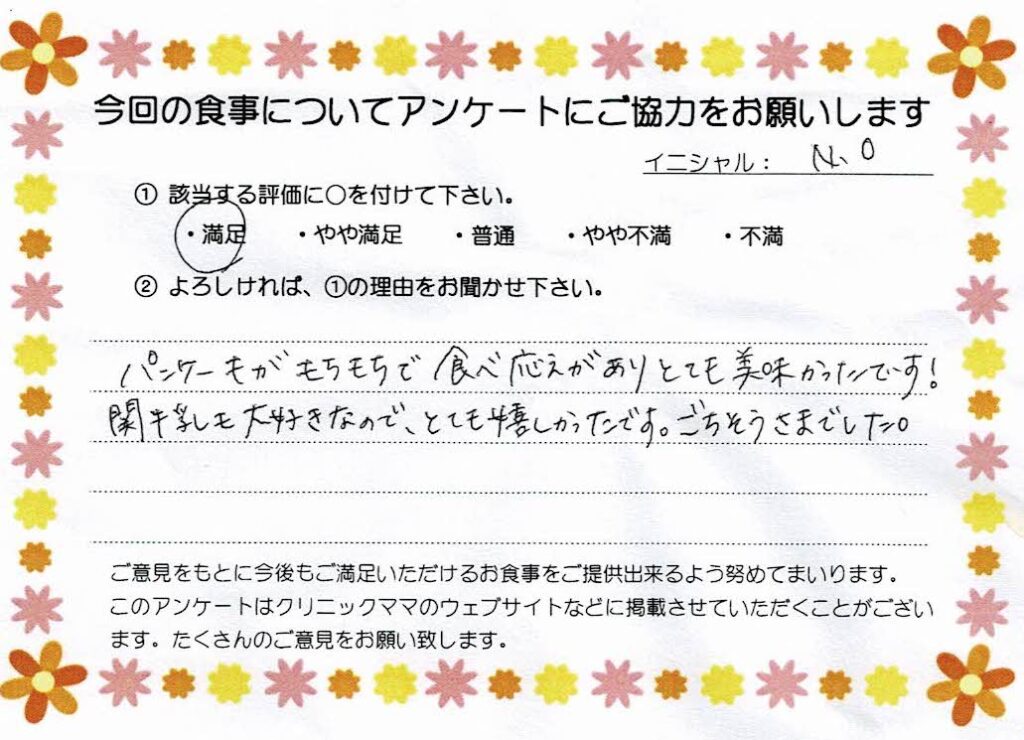 今回の食事についてアンケートにご協力をお願いします
イニシャル： N.O
① 該当する評価に○を付けて下さい。
・満足 ・やや満足 ・普通 ・やや不満 ・不満
② よろしければ、①の理由をお聞かせ下さい。
パンケーキがもちもちで食べ応えがありとても美味かったです！
関牛乳も大好きなので、とても嬉しかったです。ごちそうさまでした。
ご意見をもとに今後もご満足いただけるお食事をご提供出来るよう努めてまいります。
このアンケートはクリニックママのウェブサイトなどに掲載させていただくことがござい
ます。たくさんのご意見をお願い致します。